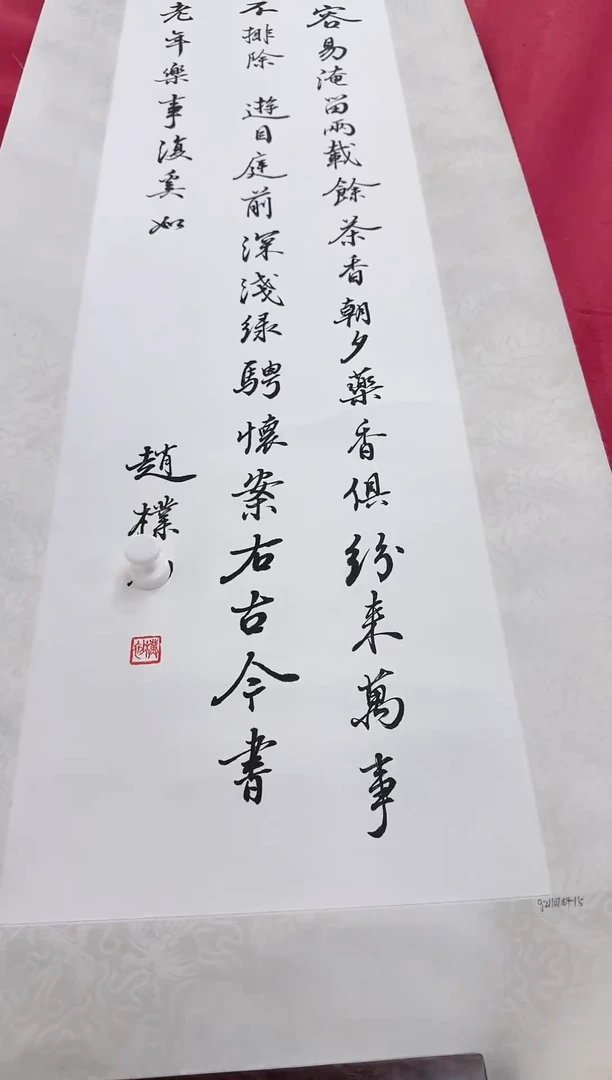 容易淹留兩載餘茶香朝夕藥香俱紛来萬事
不排除 遊目庭前深淺綠騁懷案右古今書
老年樂事復奚如
趙樸